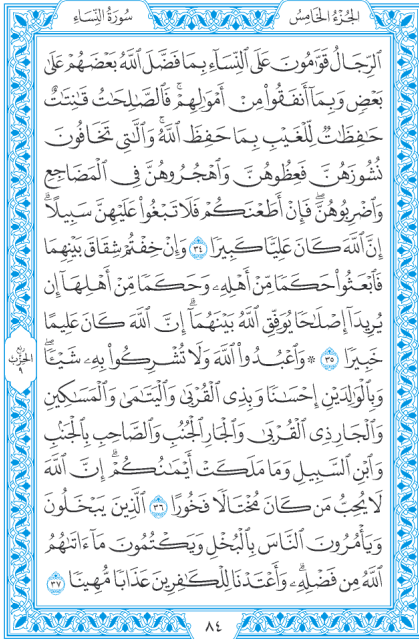 الجُزْءُ الخَامِسُ
سُورَةُ النِّسَاءِ
الرِّجَالُ قَوَّٰمُونَ عَلَى النِّسَآءِ بِمَا فَضَّلَ اللَّهُ بَعْضَهُمْ عَلَىٰ
بَعْضٍ وَبِمَآ أَنفَقُوا۟ مِنْ أَمْوَٰلِهِمْ ۚ فَالصَّٰلِحَٰتُ قَٰنِتَٰتٌ
حَٰفِظَٰتٌ لِّلْغَيْبِ بِمَا حَفِظَ اللَّهُ ۚ وَالَّٰتِى تَخَافُونَ
نُشُوزَهُنَّ فَعِظُوهُنَّ وَاهْجُرُوهُنَّ فِى الْمَضَاجِعِ
وَاضْرِبُوهُنَّ ۖ فَإِنْ أَطَعْنَكُمْ فَلَا تَبْغُوا۟ عَلَيْهِنَّ سَبِيلًا ۗ
إِنَّ اللَّهَ كَانَ عَلِيًّا كَبِيرًا ٣٤ وَإِنْ خِفْتُمْ شِقَاقَ بَيْنِهِمَا
فَابْعَثُوا۟ حَكَمًا مِّنْ أَهْلِهِۦ وَحَكَمًا مِّنْ أَهْلِهَآ إِن
يُرِيدَآ إِصْلَٰحًا يُوَفِّقِ اللَّهُ بَيْنَهُمَآ ۗ إِنَّ اللَّهَ كَانَ عَلِيمًا
خَبِيرًا ٣٥ ۞ وَاعْبُدُوا۟ اللَّهَ وَلَا تُشْرِكُوا۟ بِهِۦ شَيْـًٔا ۖ
وَبِالْوَٰلِدَيْنِ إِحْسَٰنًا وَبِذِى الْقُرْبَىٰ وَالْيَتَٰمَىٰ وَالْمَسَٰكِينِ
وَالْجَارِ ذِى الْقُرْبَىٰ وَالْجَارِ الْجُنُبِ وَالصَّاحِبِ بِالْجَنۢبِ
وَابْنِ السَّبِيلِ وَمَا مَلَكَتْ أَيْمَٰنُكُمْ ۗ إِنَّ اللَّهَ
لَا يُحِبُّ مَن كَانَ مُخْتَالًا فَخُورًا ٣٦ الَّذِينَ يَبْخَلُونَ
وَيَأْمُرُونَ النَّاسَ بِالْبُخْلِ وَيَكْتُمُونَ مَآ ءَاتَىٰهُمُ
اللَّهُ مِن فَضْلِهِۦ ۗ وَأَعْتَدْنَا لِلْكَٰفِرِينَ عَذَابًا مُّهِينًا ٣٧
رُبْع
الحِزْب
٩
٨٤